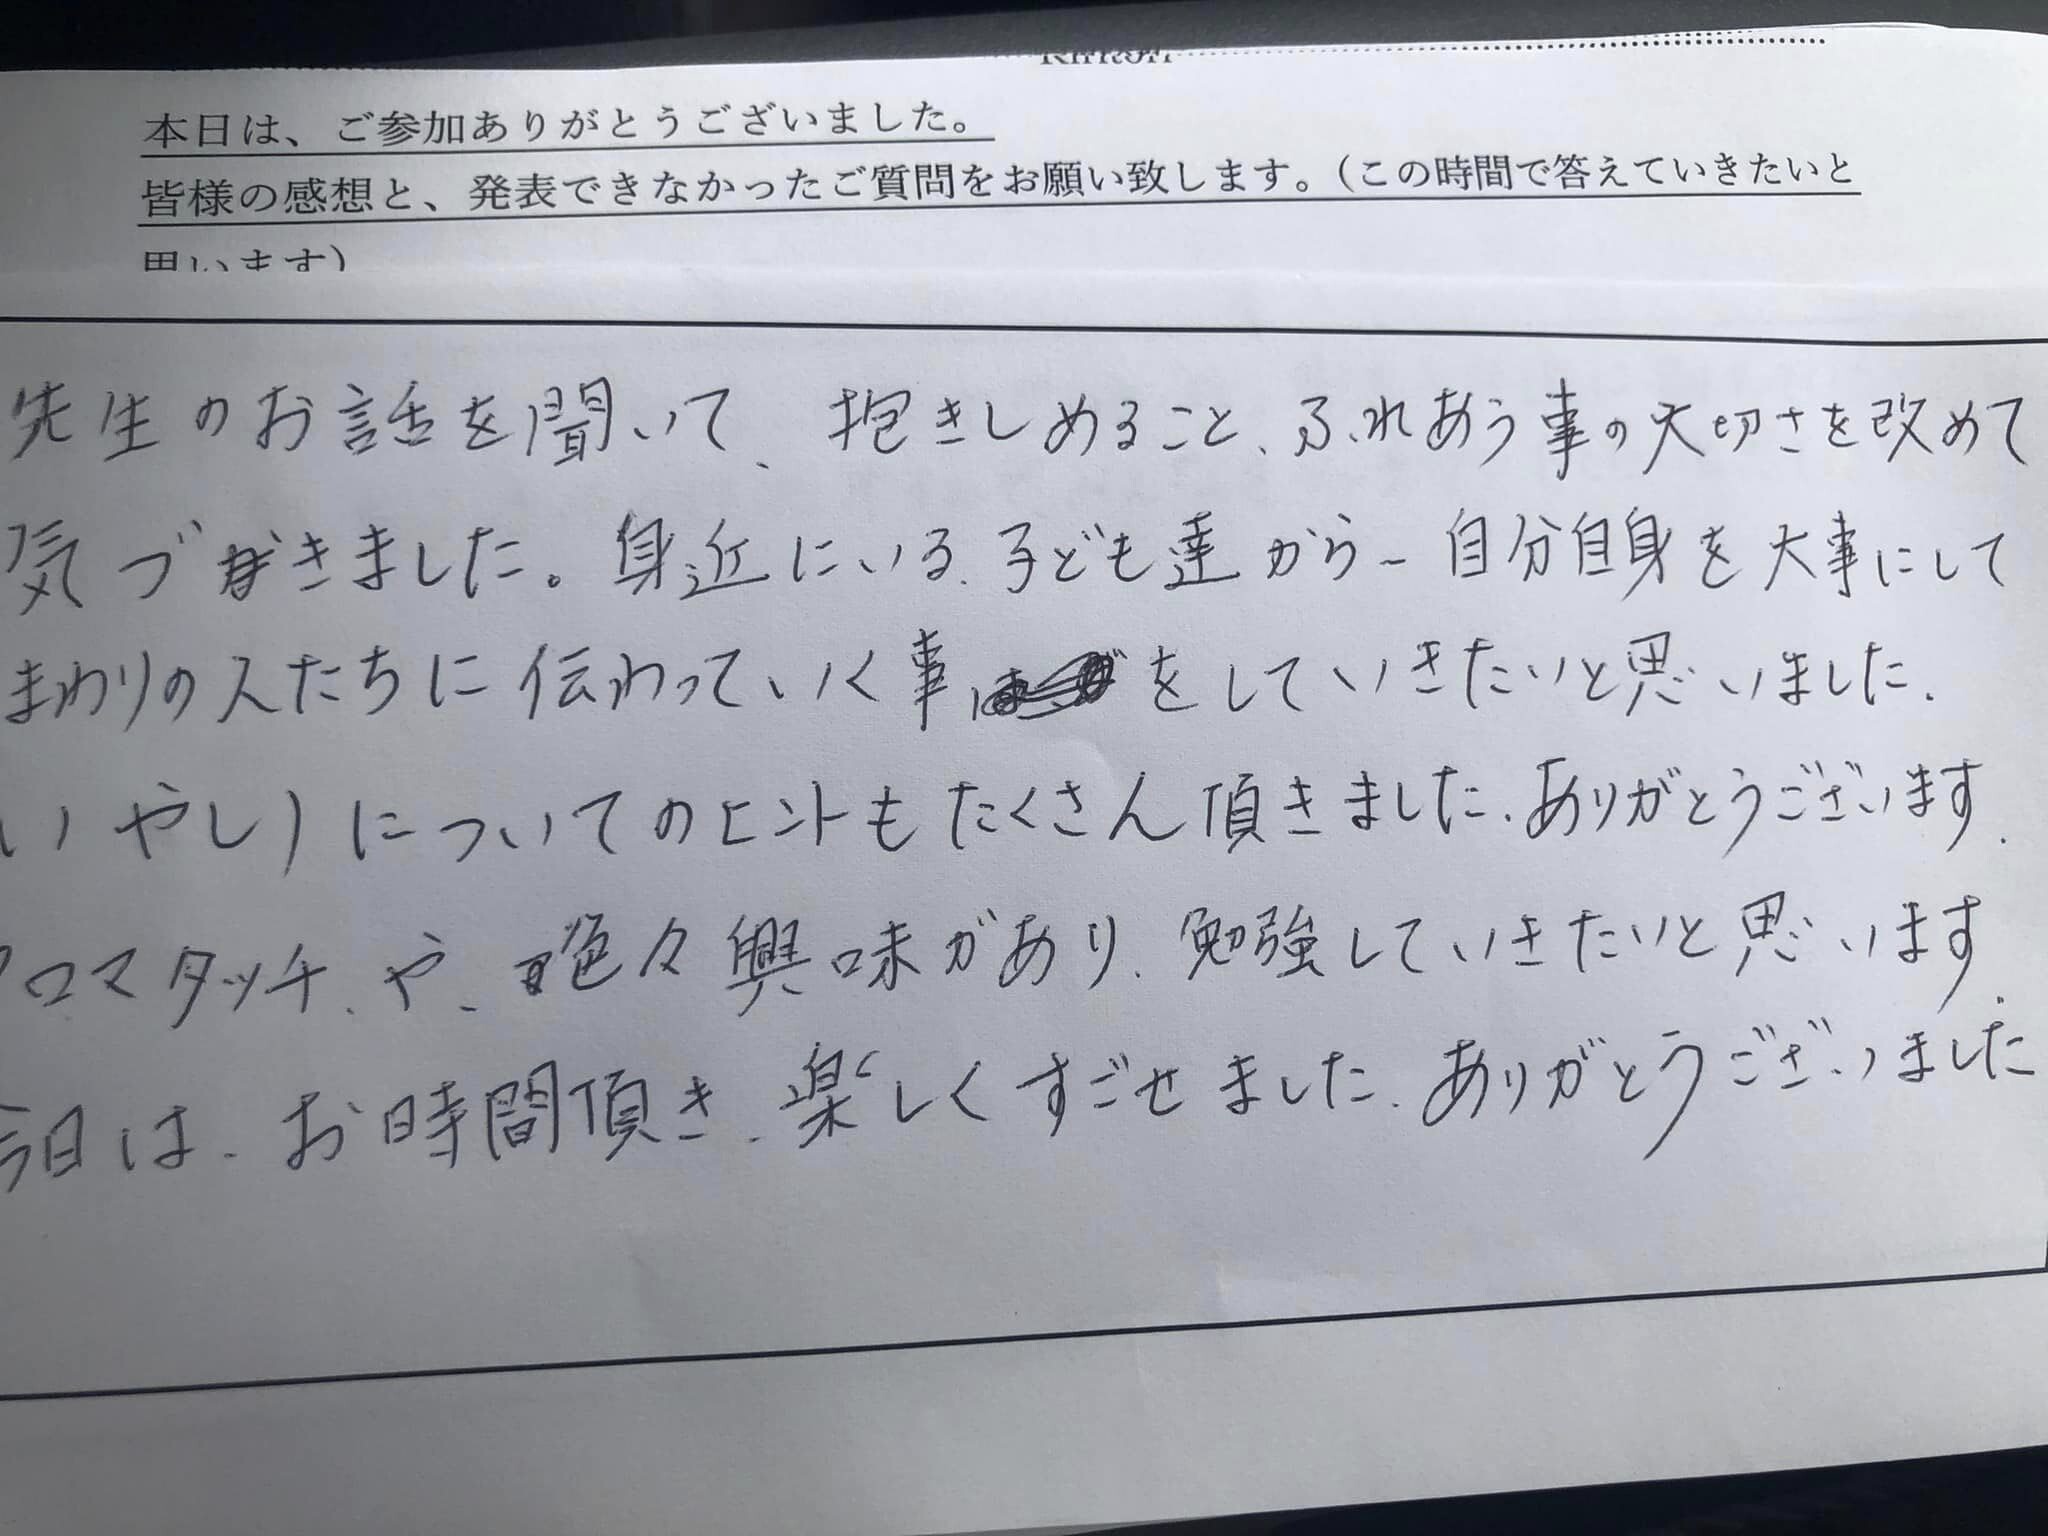 本日は、ご参加ありがとうございました。
皆様の感想と、発表できなかったご質問をお願い致します。（この時間で答えていきたいと
思います）
先生のお話を聞いて、抱きしめること、ふれあう事の大切さを改めて
気づきました。身近にいる、子ども達から、自分自身を大事にして
まわりの人たちに伝わっていく事をしていきたいと思いました。
いやし）についてのヒントもたくさん頂きました。ありがとうございます。
ロマタッチ、や、色々興味があり、勉強していきたいと思います。
今日は、お時間頂き、楽しくすごせました。ありがとうございました